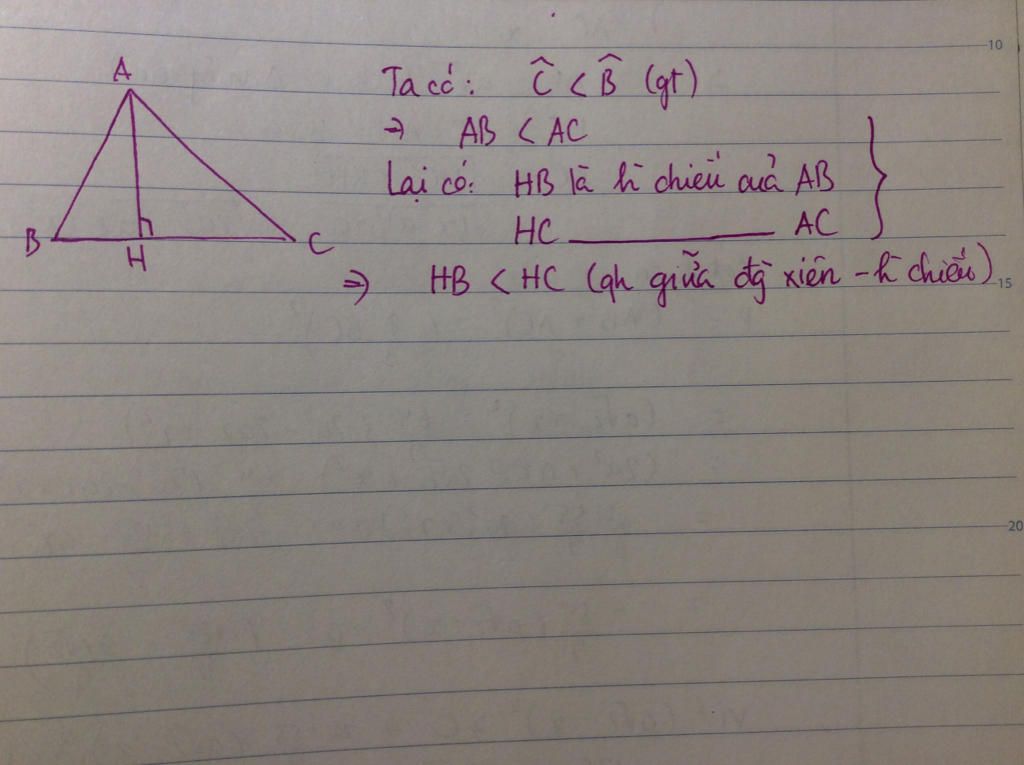 A
B
H
C
Ta có: Ĉ < B̂ (gt)
⇒ AB < AC
Lại có: HB là h̀ chiếu của AB
HC ________ AC
⇒ HB < HC (qh giữa đg̀ xiên - h̀ chiếu)
10
15
20